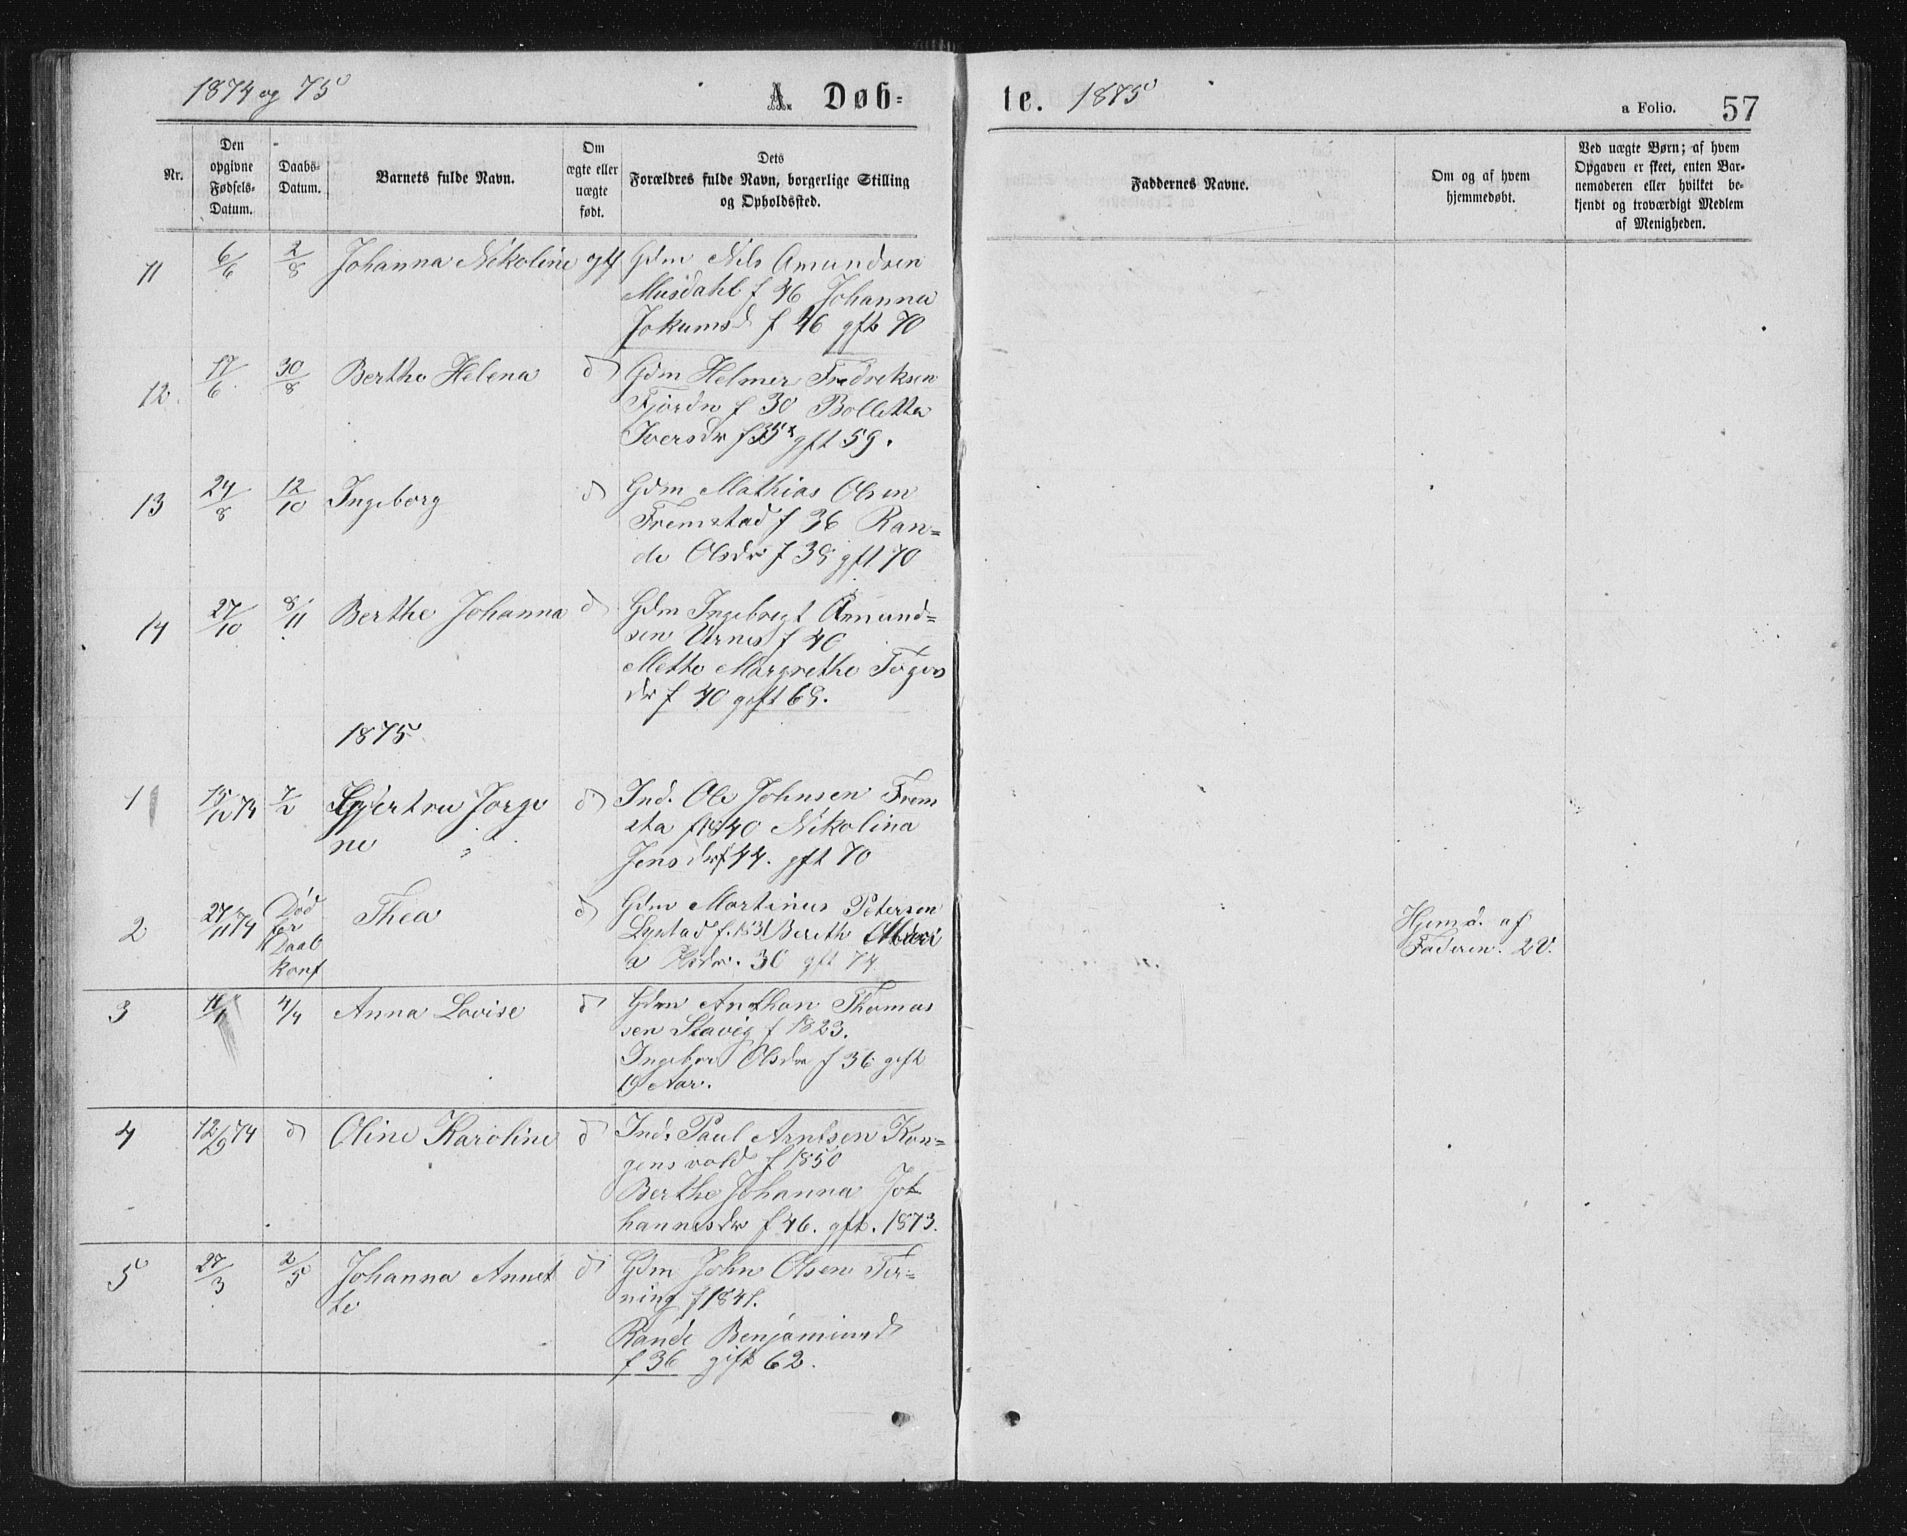 1874 og 75
A. Døb-
te. 1875
a Folio. 57
Nr.
Den opgivne Fødsels-Datum.
Daabs-Datum.
Barnets fulde Navn.
Om ægte eller uægte født.
Dets Forældres fulde Navn, borgerlige Stilling og Opholdssted.
Faddernes Navne.
Om og af hvem hjemmedøbt.
Ved uægte Børn; af hvem Opgaven er skeet, enten Barnemoderen eller hvilket bekjendt og troværdigt Medlem af Menigheden.
11 6/6 2/8 Johanna Nikoline gtf Gdm Nils Amundsen
Musdahl f 46 Johanna
Jokumsd f 46 gft 70
12. 17/6 30/8 Berthe Helena d Gdm Helmer Fredreksen
Fjordn f 30 Bolletta
Iversdr f 35 gft 59.
13 24/8 12/10 Ingeborg d Gdm Mathias Olsen
Fremstad f 36 Ran-
de Olsdr f 39 gft 70
14 27/10 8/11 Berthe Johanna d Gdm Ingebregt Amund-
sen Urnes f 40
Mette Margrethe
dr f 40 gift 69.
1875
1 15/12 73 7/2 Gjertru Jorge d Ind. Ole Johnsen Frem
ne sta f 1840 Nikolina
Jensdr f 44. gft 70
2 27/11 74 Død Thea d Gdm Martinus Petersen
før f. 1831 Bereth
Daab a 30 gft 74
Konf
Hjemd. af
Faderen. 2 V.
3 11/1 4/4 Anna Lovise d Gdm Anthon Thomas
sen Stavig f 1823.
Ingebor Olsdr f 36 gift
19 Aar.
4 12/9 74 d Oline Karoline d Ind. Paul Arntsen Kon-
gensvold f 1850
Berthe Johanna Jo
hannesdr f 46. gft. 1873.
5 27/3 2/5 Johanna Annet d Gdm John Olsen Ter-
te ning f 1841.
Rande Benjaminsd
f 36 gift 62.